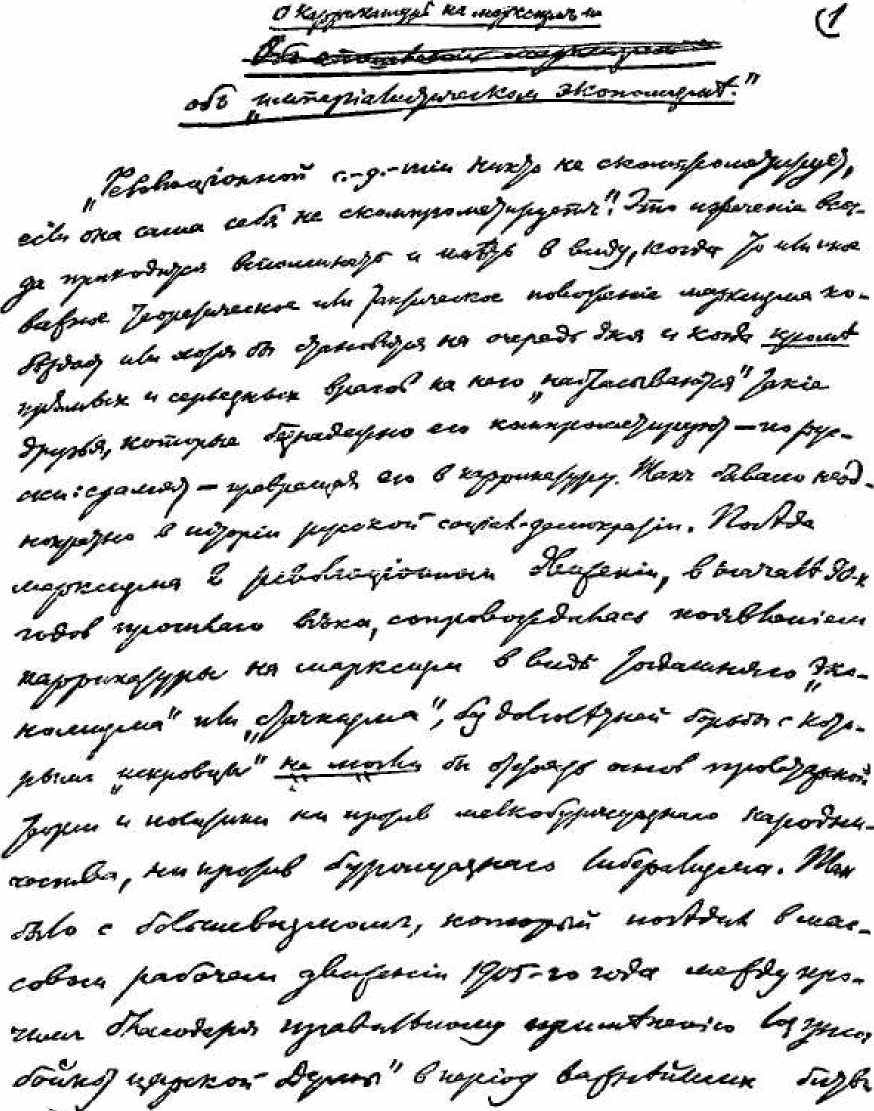 О каррикатуре на марксизм и (1
объ „империалистическом экономизмѣ."
„Революціонной с.-д.-тіи никто не скомпрометируетъ,
если она сама себя не скомпрометируетъ". Это изреченіе всег-
да приходится вспоминать и имѣть в виду, когда то или иное
важное теоретическое или тактическое положеніе марксизма по-
бѣждает или хотя бы становится на очередь дня и когда кромѣ
прямых и серьезных врагов на него „набрасываются" такіе
друзья, которые безнадежно его компрометируют — по рус-
ски: срамят — превращая его в каррикатуру. Такъ бывало неод-
нократно в исторіи русской соціал-демократіи. Побѣда
марксизма в революціонном движеніи, в началѣ 90-х
годов прошлаго вѣка, сопровождалась появленіем
каррикатуры на марксизм в видѣ тогдашняго „эко-
номизма" или „стачкизма", без долголѣтней борьбы с кото-
рым „искровцы" не могли бы отстоять основ пролетарской
теории и политики ни против мелкобуржуазнаго народни-
чества, ни против буржуазнаго либерализма. Так
было с большевизмом, который побѣдил в мас-
совом рабочем движеніи 1905-го года между про-
чим благодаря правильному примѣненію лозунга
бойкот царской Думы" в період важнѣйших битв